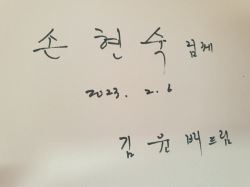 손 현 수 님께
2023. 2. 6
김 윤 배 드림